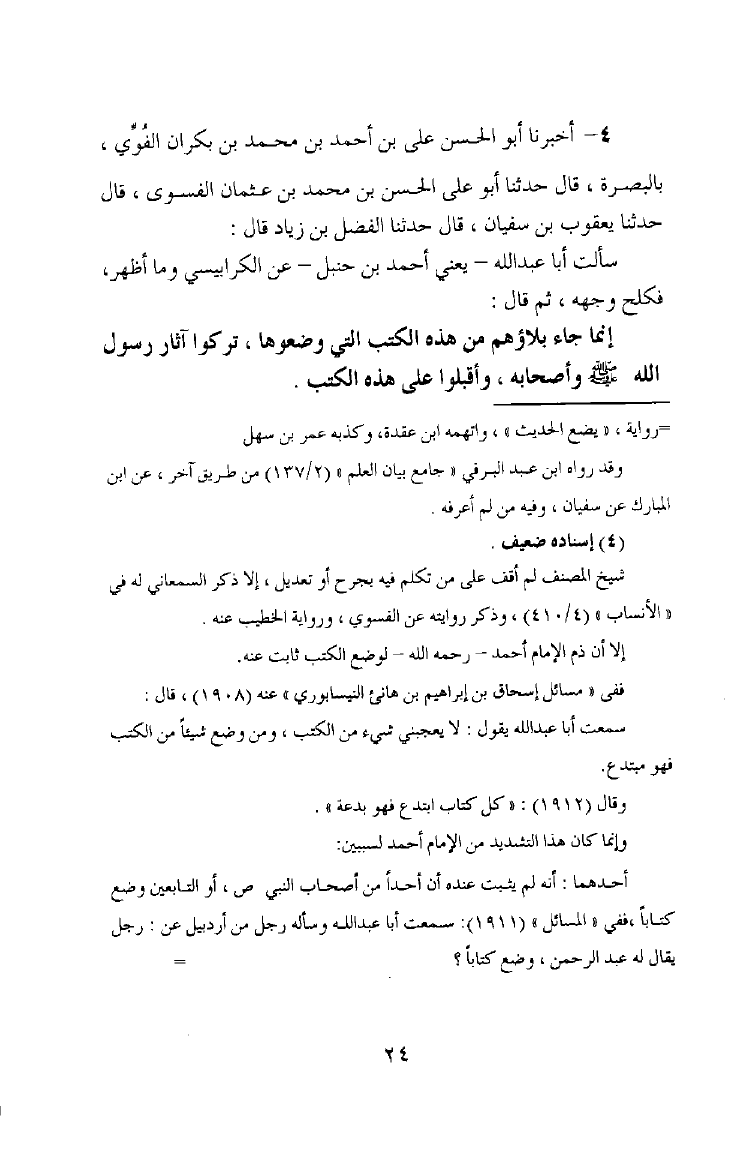 ٤- أخبرنا أبو الحسن على بن أحمد بن محمد بن بكران الفُوِّي ،
بالبصرة ، قال حدثنا أبو على الحسن بن محمد بن عثمان الفسوى ، قال
حدثنا يعقوب بن سفيان ، قال حدثنا الفضل بن زياد قال :
سألت أبا عبدالله – يعني أحمد بن حنبل – عن الكرابيسي وما أظهر،
فكلح وجهه ، ثم قال :
إنما جاء بلاؤهم من هذه الكتب التي وضعوها ، تركوا آثار رسول
الله ﷺ وأصحابه ، وأقبلوا على هذه الكتب .
=رواية ، « يضع الحديث » ، واتهمه ابن عقدة، وكذبه عمر بن سهل
وقد رواه ابن عبد البرفي « جامع بيان العلم » (١٣٧/٢) من طريق آخر ، عن ابن
المبارك عن سفيان ، وفيه من لم أعرفه .
(٤) إسناده ضعيف .
شيخ المصنف لم أقف على من تكلم فيه بجرح أو تعديل ، إلا ذكر السمعاني له في
« الأنساب » (٤١٠/٤) ، وذكر روايته عن الفسوي ، ورواية الخطيب عنه .
إلا أن ذم الإمام أحمد – رحمه الله – لوضع الكتب ثابت عنه.
ففى « مسائل إسحاق بن إبراهيم بن هانئ النيسابوري » عنه (١٩٠٨) ، قال :
سمعت أبا عبدالله يقول : لا يعجبني شيء من الكتب ، ومن وضع شيئاً من الكتب
فهو مبتدع.
وقال (١٩١٢) : « كل كتاب ابتدع فهو بدعة » .
وإنما كان هذا التشديد من الإمام أحمد لسببين:
أحدهما : أنه لم يثبت عنده أن أحداً من أصحاب النبي ص ، أو التابعين وضع
كتاباً ،ففي « المسائل » (١٩١١): سمعت أبا عبدالله وسأله رجل من أردبيل عن : رجل
يقال له عبد الرحمن ، وضع كتاباً ؟ =
٢٤